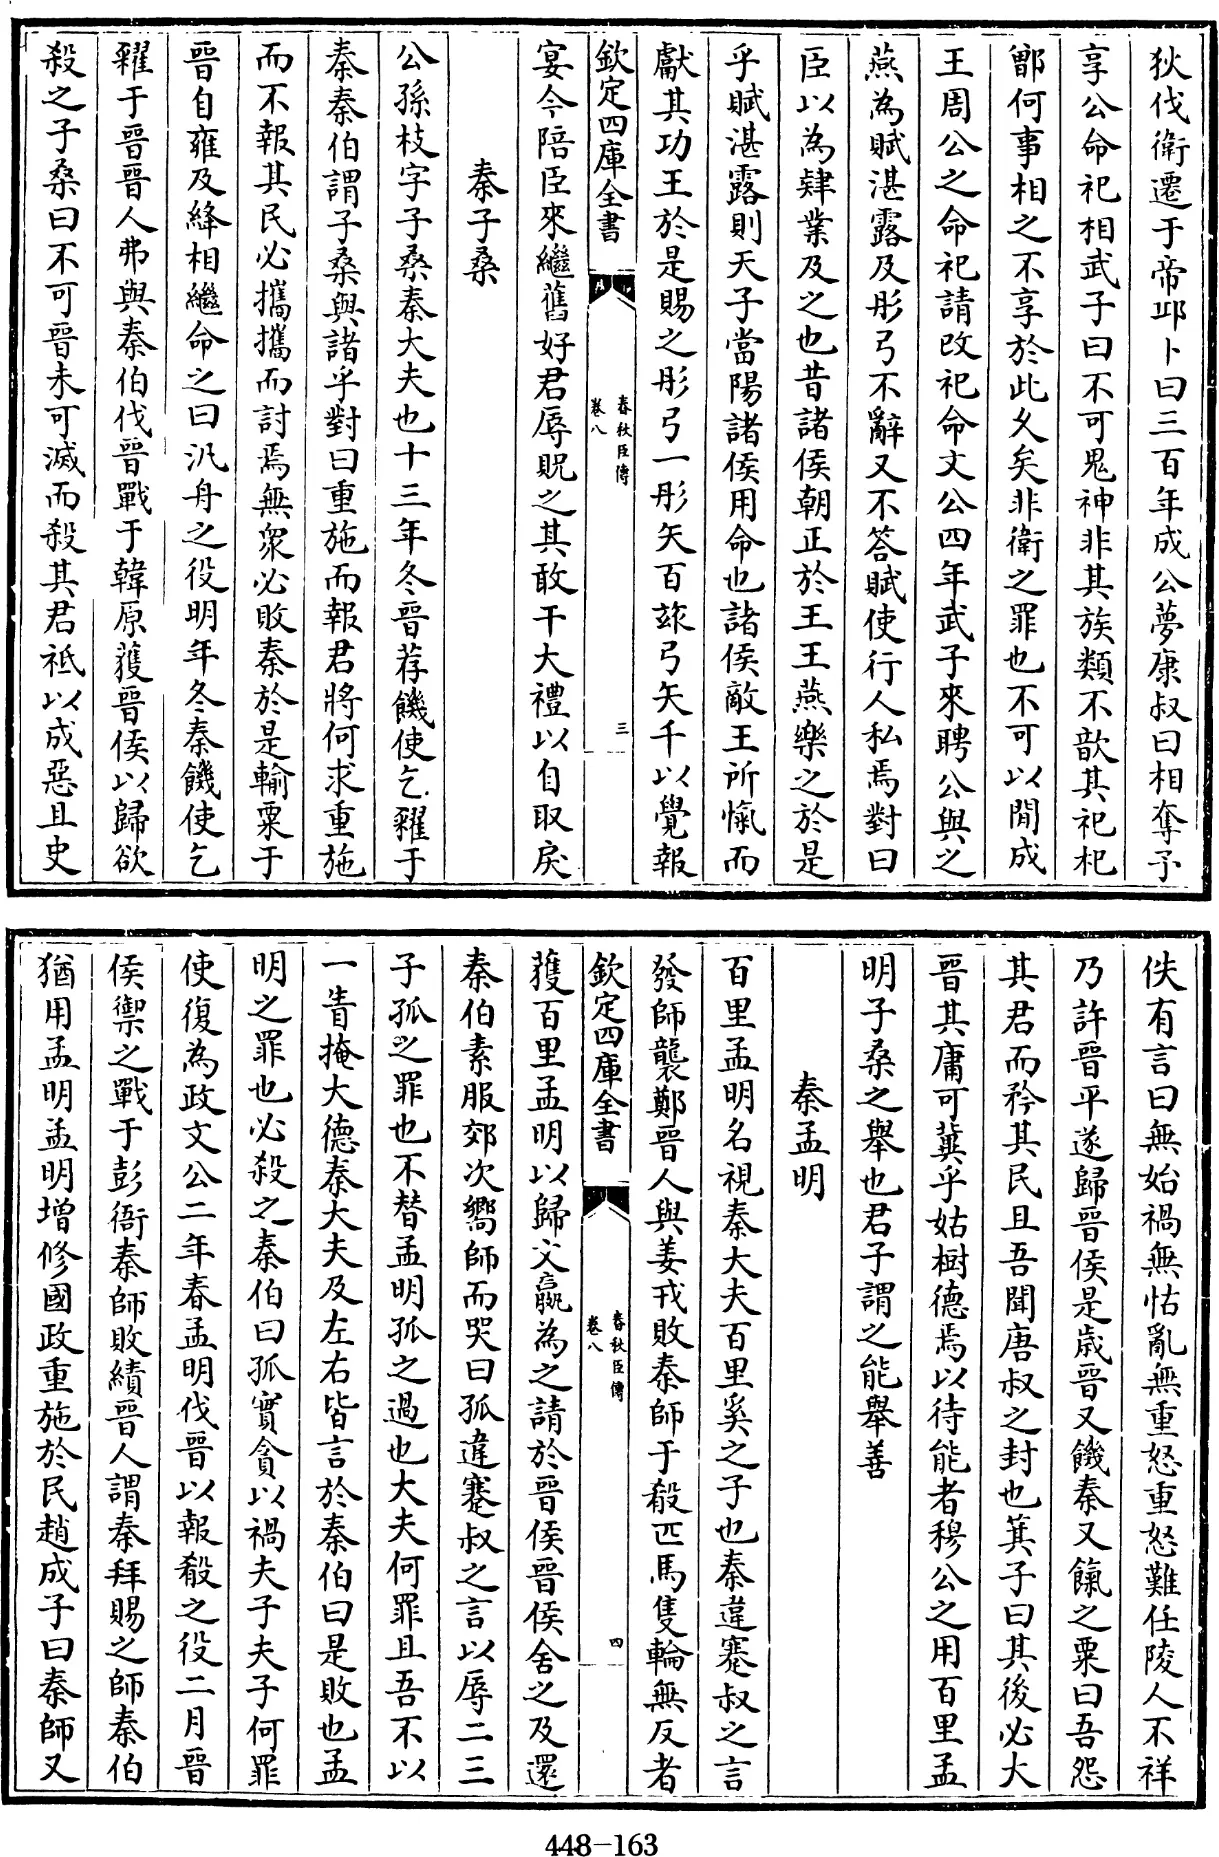 狄伐衛遷于帝邱卜曰三百年成公夢康叔曰相奪予
享公命祀相武子曰不可鬼神非其族類不歆其祀杞
鄫何事相之不享於此久矣非衛之罪也不可以間成
王周公之命祀請改祀命文公四年武子來聘公與之
燕為賦湛露及彤弓不辭又不答賦使行人私焉對曰
臣以為肄業及之也昔諸侯朝正於王王燕樂之於是
乎賦湛露則天子當陽諸侯用命也諸侯敵王所愾而
獻其功王於是賜之彤弓一彤矢百玈弓矢千以覺報
欽定四庫全書
春秋臣傳
卷八
三
宴今陪臣來繼舊好君辱貺之其敢干大禮以自取戾
秦子桑
公孫枝字子桑秦大夫也十三年冬晉荐饑使乞糴于
秦秦伯謂子桑與諸乎對曰重施而報君將何求重施
而不報其民必攜攜而討焉無衆必敗秦於是輸粟于
晉自雍及絳相繼命之曰汎舟之役明年冬秦饑使乞
糴于晉晉人弗與秦伯伐晉戰于韓原獲晉侯以歸欲
殺之子桑曰不可晉未可滅而殺其君祗以成惡且史
佚有言曰無始禍無怙亂無重怒重怒難任陵人不祥
乃許晉平遂歸晉侯是歲晉又饑秦又餼之粟曰吾怨
其君而矜其民且吾聞唐叔之封也箕子曰其後必大
晉其庸可冀乎姑樹德焉以待能者穆公之用百里孟
明子桑之舉也君子謂之能舉善
秦孟明
百里孟明名視秦大夫百里奚之子也秦違蹇叔之言
發師襲鄭晉人與姜戎敗秦師于殽匹馬隻輪無反者
欽定四庫全書
春秋臣傳
卷八
四
獲百里孟明以歸文嬴為之請於晉侯晉侯舍之及還
秦伯素服郊次嚮師而哭曰孤違蹇叔之言以辱二三
子孤之罪也不替孟明孤之過也大夫何罪且吾不以
一眚掩大德秦大夫及左右皆言於秦伯曰是敗也孟
明之罪也必殺之秦伯曰孤實貪以禍夫子夫子何罪
使復為政文公二年春孟明伐晉以報殽之役二月晉
侯禦之戰于彭衙秦師敗績晉人謂秦拜賜之師秦伯
猶用孟明孟明增修國政重施於民趙成子曰秦師又
448-163